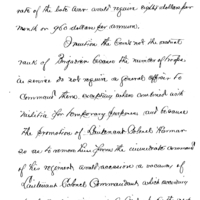 rate of the late War would require eighty dollars per
month or 960 dollars per annum.
I mention the Lieut not the actual
rank of Brigadier because the number of troops
in service do not require a general officer to
command them excepting when combined with
militia for temporary purposes and because
the promotion of Lieutenant Colonel Harmar
so as to remove him from the immediate command
of his regiment would occasion a vacancy of
Lieutenant Colonel Commandant which